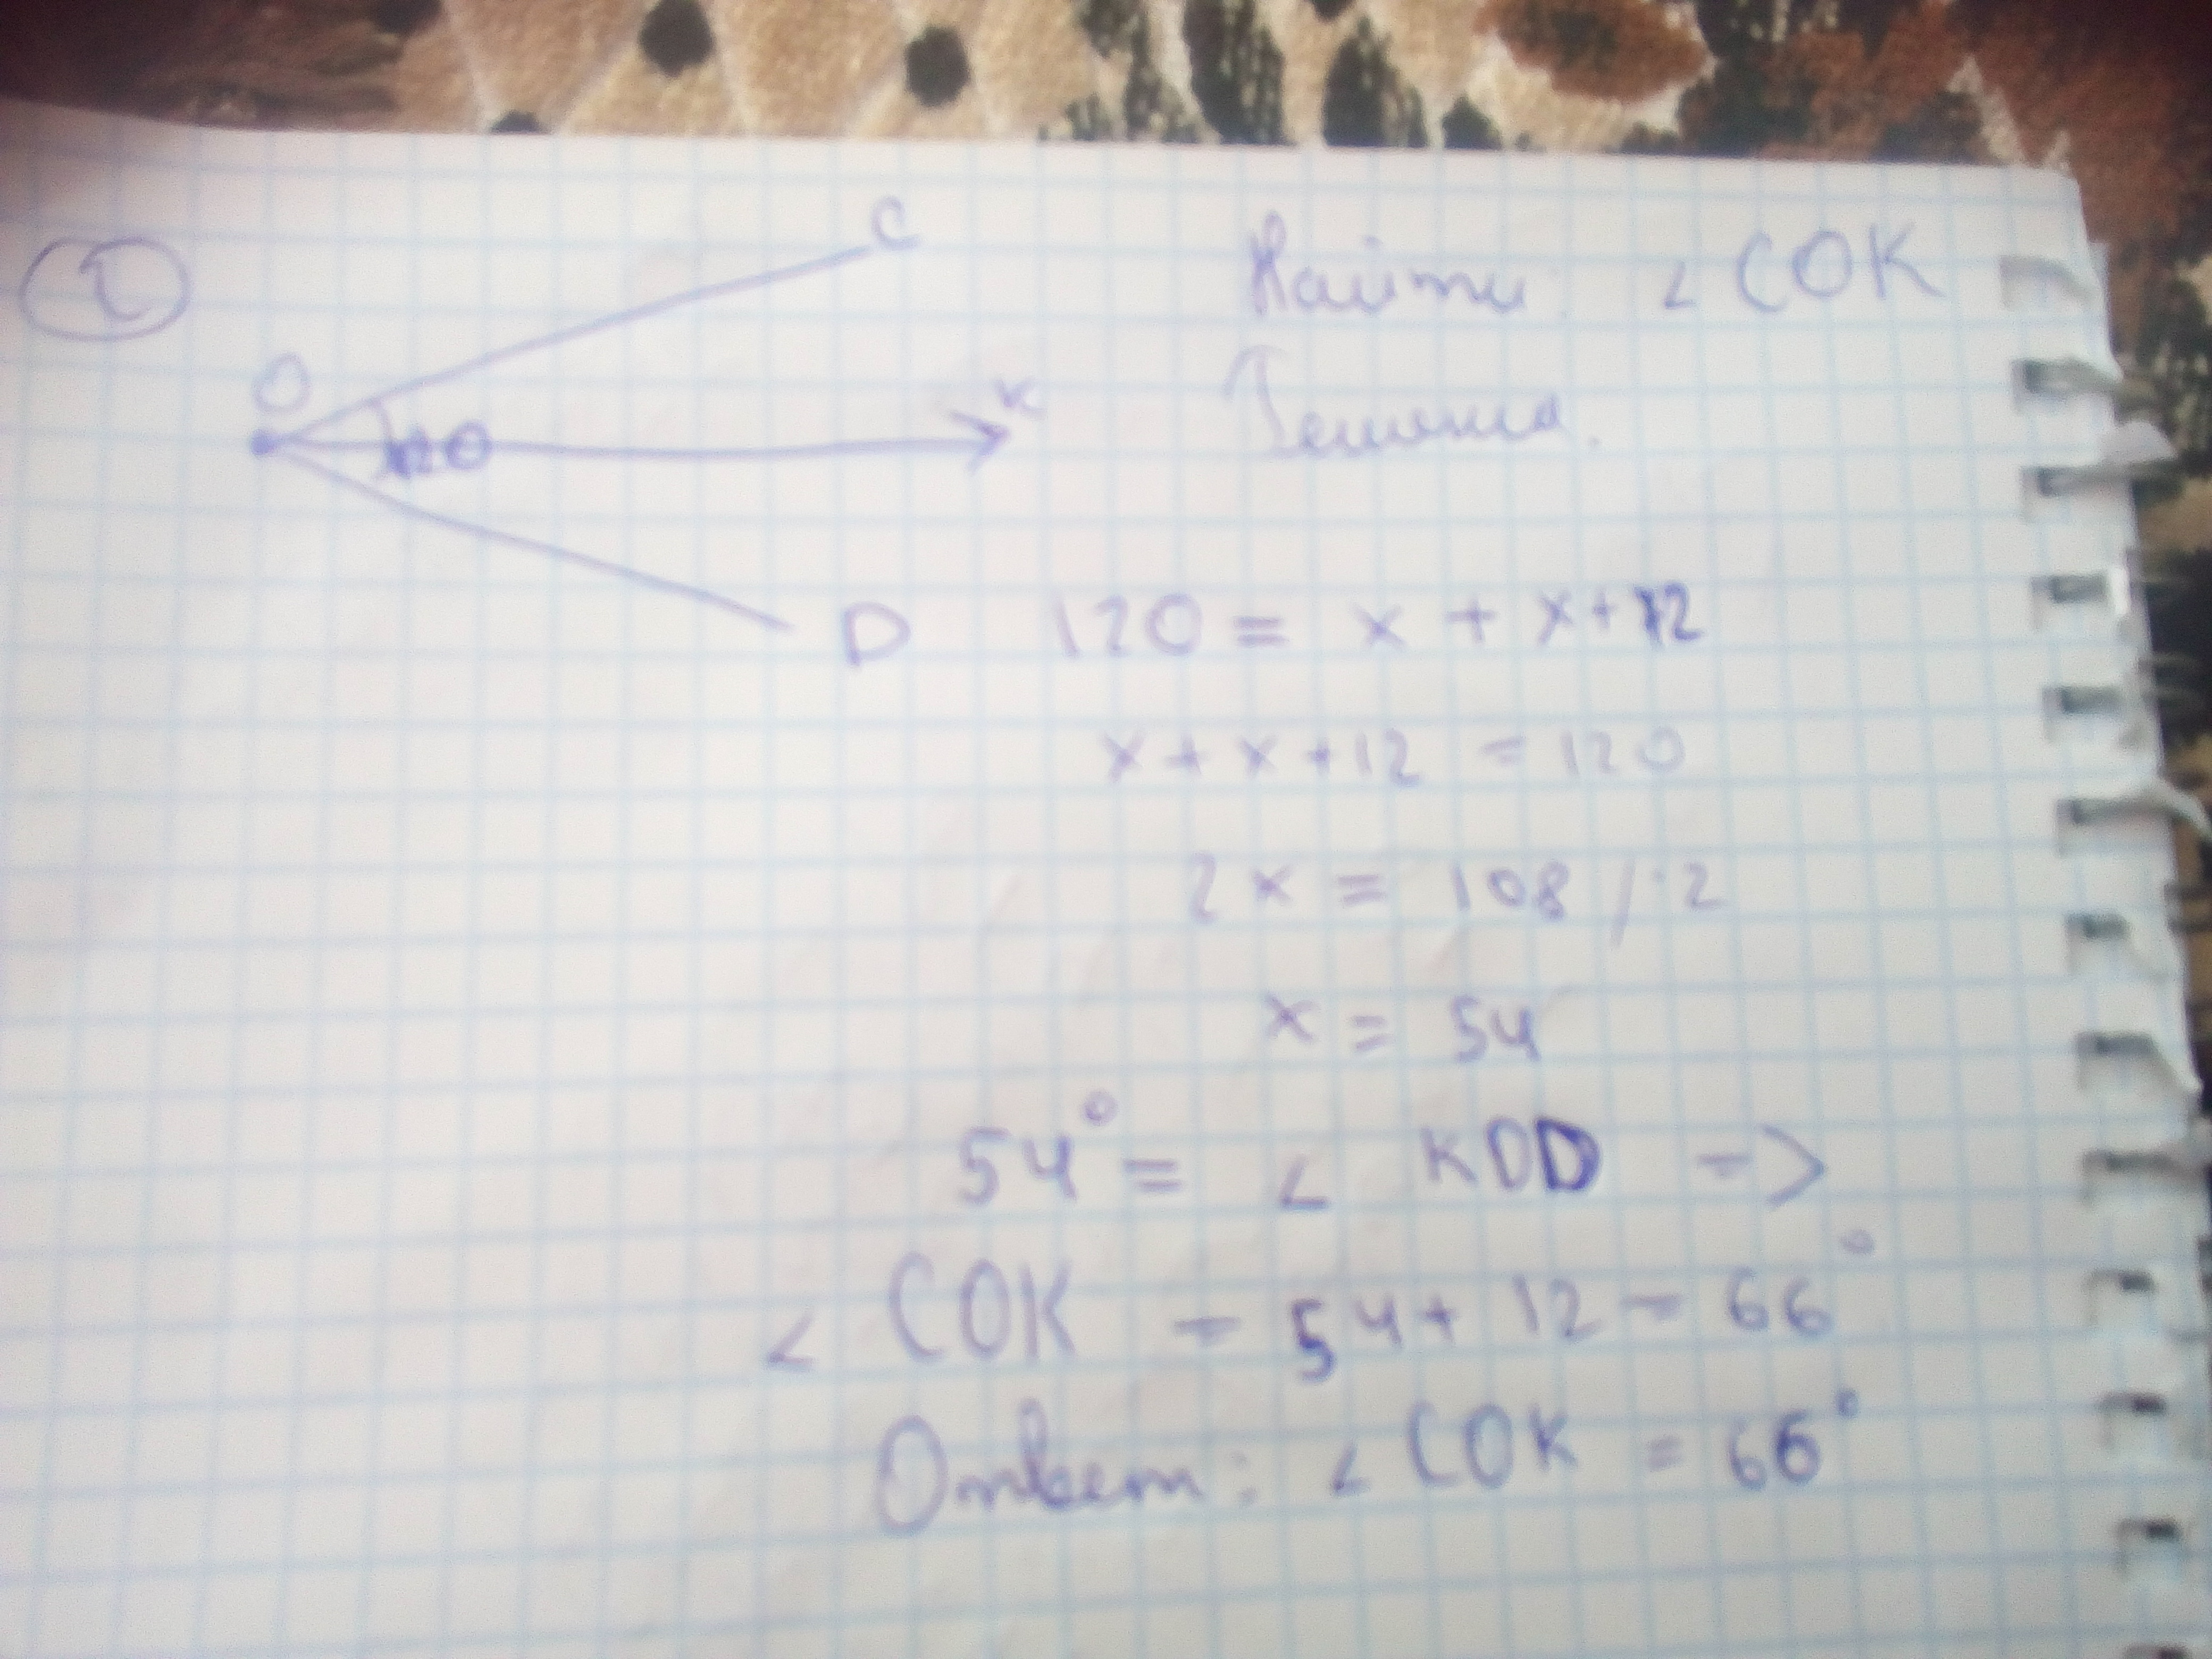 1
C
Найти: ∠ COK
O
K
120
Решение.
D
120 = x + x + 12
x + x + 12 = 120
2x = 108 / : 2
x = 54
54° = ∠ KOD =>
∠ COK = 54 + 12 = 66°
Ответ: ∠ COK = 66°